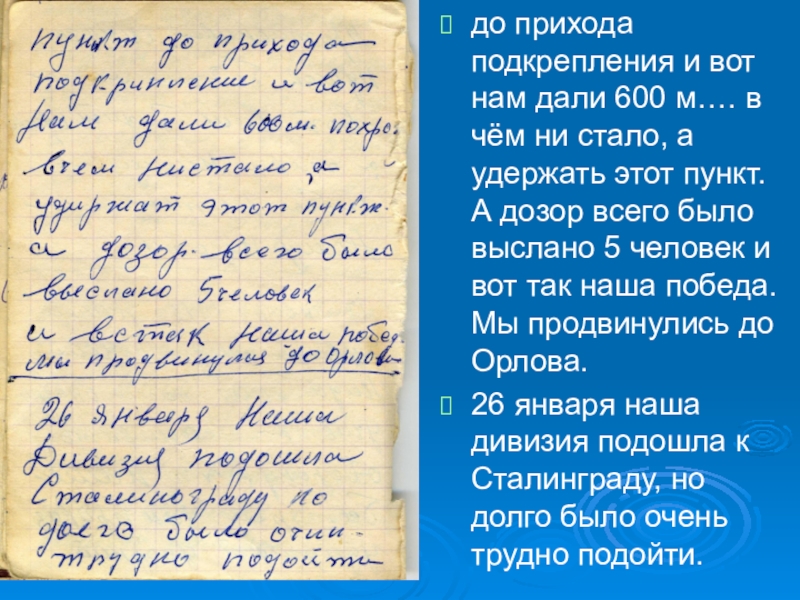 пункт до прихода
подкрипление и вот
нам дали 600 м.
вчем нистало, а
удиржат этот пункт.
а дозор. всего было
выслано 5 человек
и вотак наша побед
мы продвинулися до Орлова
26 января Наша
Дивизия подошла
Сталинограду но
долго было очин-
трудно подойти
до прихода
подкрепления и вот
нам дали 600 м…. в
чём ни стало, а
удержать этот пункт.
А дозор всего было
выслано 5 человек и
вот так наша победа.
Мы продвинулись до
Орлова.
26 января наша
дивизия подошла к
Сталинграду, но
долго было очень
трудно подойти.